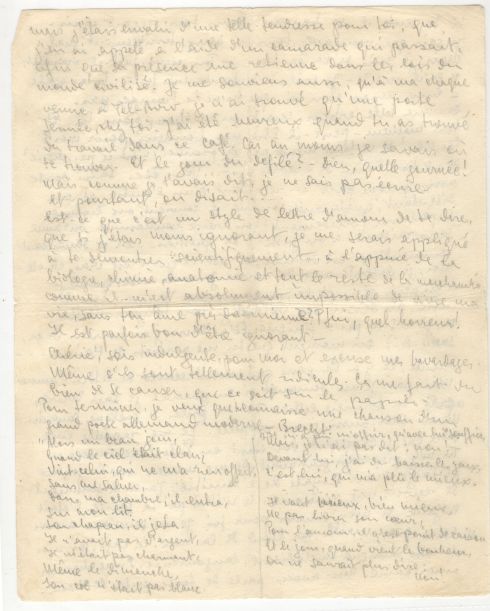 mais j'étais envahi d'une telle tendresse pour toi, que
j'en ai appelé à l'aide d'un camarade qui passait,
afin que sa présence me retienne dans les lois du
monde civilisé. Je me souviens aussi, qu'à ma chaque
venue à je n'ai trouvé qu'une porte
fermée chez toi. J'ai été heureux quand tu as trouvé
du travail dans ce café. Car au moins je savais où
te trouver. Et le jour du défilé? - Dieu, quelle journée!
Mais comme je t'avais dit, je ne sais pas écrire
et pourtant, on disait...
Est-ce que c'est un style de lettre d'amour de te dire,
que si j'étais moins ignorant, je me serais appliqué
à te démontrer scientifiquement, à l'appuie de la
biologie, chimie, anatomie et tout le reste de la
comme il m'est absolument impossible de vivre ma
vie, sans ton âme près de la mienne? Pfui, quel horreur!
Il est parfois bon d'être ignorant -
Chérie, sois indulgente pour moi et excuse mes bavardages.
Même s'ils sont tellement ridicules. Ça me fait du
bien de te causer, que ce soit sur le papier.
Pour terminer, je veux que tu connaisse une chanson d'un
grand poète allemand moderne - Brecht:
"Mais un beau jour,
Quand le ciel était clair,
Vint celui, qui ne m'a rien offert,
Sans me saluer,
Dans ma chambre, il entra,
Sur mon lit,
Son chapeau, il jeta
Il n'avait pas d'argent,
Il n'était pas charmant,
Même le dimanche,
Son col n'était pas blanc.
Mais, j'lui ai pas dit: non!
Devant lui, j'ai dû baisser les yeux,
C'est lui, qui m'a plu le mieux.
Il vaut mieux, bien mieux
Ne pas livrer son cœur,
Pour l'amour, il n'est point de raison
Et le jour, quand vient le bonheur,
On ne saurait plus dire:
Non!